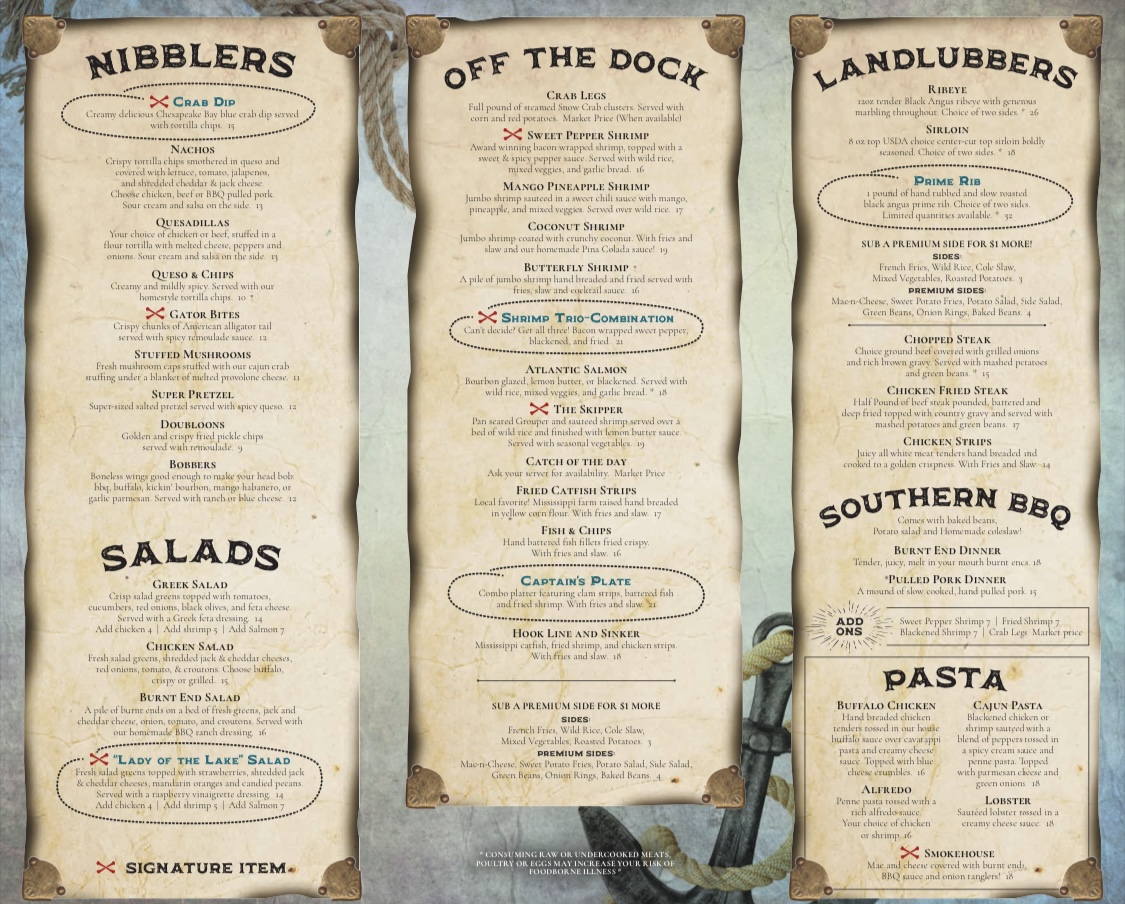 NIBBLERS
CRAB DIP
Creamy delicious Chesapeake Bay blue crab dip served
with tortilla chips. 15
NACHOS
Crispy tortilla chips smothered in queso and
covered with lettuce, tomato, jalapenos,
and shredded cheddar & jack cheese.
Choose chicken, beef or BBQ pulled pork.
Sour cream and salsa on the side. 13
QUESADILLAS
Your choice of chicken or beef, stuffed in a
flour tortilla with melted cheese, peppers and
onions. Sour cream and salsa on the side. 13
QUESO & CHIPS
Creamy and mildly spicy. Served with our
homestyle tortilla chips. 10 *
GATOR BITES
Crispy chunks of American alligator tail
served with spicy remoulade sauce. 12
STUFFED MUSHROOMS
Fresh mushroom caps stuffed with our cajun crab
stuffing under a blanket of melted provolone cheese. 11
SUPER PRETZEL
Super-sized salted pretzel served with spicy queso. 12
DOUBLOONS
Golden and crispy fried pickle chips
served with remoulade. 9
BOBBERS
Boneless wings good enough to make your head bob:
bbq, buffalo, kickin' bourbon, mango habanero, or
garlic parmesan. Served with ranch or blue cheese 12
SALADS
GREEK SALAD
Crisp salad greens topped with tomatoes,
cucumbers, red onions, black olives, and feta cheese.
Served with a Greek feta dressing. 14
Add chicken 4 | Add shrimp 5 | Add Salmon 7
CHICKEN SALAD
Fresh salad greens, shredded jack & cheddar cheeses,
red onions, tomato, & croutons. Choose buffalo,
crispy or grilled. 15
BURNT END SALAD
A pile of burnt ends on a bed of fresh greens, jack and
cheddar cheese, onion, tomato, and croutons. Served with
our homemade BBQ ranch dressing. 16
"LADY OF THE LAKE" SALAD
Fresh salad greens topped with strawberries, shredded jack
& cheddar cheeses, mandarin oranges and candied pecans.
Served with a raspberry vinaigrette dressing. 14
Add chicken 4 | Add shrimp 5 | Add Salmon 7
SIGNATURE ITEM
OFF THE DOCK
CRAB LEGS
Full pound of steamed Snow Crab clusters. Served with
corn and red potatoes. Market Price (When available)
SWEET PEPPER SHRIMP
Award winning bacon wrapped shrimp, topped with a
sweet & spicy pepper sauce. Served with wild rice,
mixed veggies, and garlic bread. 16
MANGO PINEAPPLE SHRIMP
Jumbo shrimp sauteed in a sweet chili sauce with mango,
pineapple, and mixed veggies. Served over wild rice. 17
COCONUT SHRIMP
Jumbo shrimp coated with crunchy coconut. With fries and
slaw and our homemade Pina Colada sauce! 19
BUTTERFLY SHRIMP
A pile of jumbo shrimp hand breaded and fried served with
fries, slaw and cocktail sauce. 16
SHRIMP TRIO-COMBINATION
Can't decide? Get all three! Bacon wrapped sweet pepper,
blackened, and fried. 21
ATLANTIC SALMON
Bourbon glazed, lemon butter, or blackened. Served with
wild rice, mixed veggies, and garlic bread. * 18
THE SKIPPER
Pan seared Grouper and sauteed shrimp served over a
bed of wild rice and finished with lemon butter sauce.
Served with seasonal vegetables. 19
CATCH OF THE DAY
Ask your server for availability. Market Price
FRIED CATFISH STRIPS
Local favorite! Mississippi farm raised hand breaded
in yellow corn flour. With fries and slaw. 17
FISH & CHIPS
Hand battered fish fillets fried crispy.
With fries and slaw. 16
CAPTAIN'S PLATE
Combo platter featuring clam strips, battered fish
and fried shrimp. With fries and slaw. 21
HOOK LINE AND SINKER
Mississippi catfish, fried shrimp, and chicken strips.
With fries and slaw. 18
SUB A PREMIUM SIDE FOR $1 MORE
SIDES:
French Fries, Wild Rice, Cole Slaw,
Mixed Vegetables, Roasted Potatoes. 3
PREMIUM SIDES:
Mac-n-Cheese, Sweet Potato Fries, Potato Salad, Side Salad,
Green Beans, Onion Rings, Baked Beans. 4
* CONSUMING RAW OR UNDERCOOKED MEATS,
POULTRY OR EGGS MAY INCREASE YOUR RISK OF
FOODBORNE ILLNESS *
LANDLUBBERS
RIBEYE
12oz tender Black Angus ribeye with generous
marbling throughout. Choice of two sides. * 26
SIRLOIN
8 oz top USDA choice center-cut top sirloin boldly
seasoned. Choice of two sides. * 18
PRIME RIB
1 pound of hand rubbed and slow roasted
black angus prime rib. Choice of two sides.
Limited quantities available. * 32
SUB A PREMIUM SIDE FOR $1 MORE!
SIDES:
French Fries, Wild Rice, Cole Slaw,
Mixed Vegetables, Roasted Potatoes. 3
PREMIUM SIDES:
Mac-n-Cheese, Sweet Potato Fries, Potato Salad, Side Salad,
Green Beans, Onion Rings, Baked Beans. 4
CHOPPED STEAK
Choice ground beef covered with grilled onions
and rich brown gravy. Served with mashed potatoes
and green beans. * 15
CHICKEN FRIED STEAK
Half Pound of beef steak pounded, battered and
deep fried topped with country gravy and served with
mashed potatoes and green beans. 17
CHICKEN STRIPS
Juicy all white meat tenders hand breaded and
cooked to a golden crispness. With Fries and Slaw. 14
SOUTHERN BBQ
Comes with baked beans,
Potato salad and Homemade coleslaw!
BURNT END DINNER
Tender, juicy, melt in your mouth burnt ends. 18
*PULLED PORK DINNER
A mound of slow cooked, hand pulled pork. 15
ADD ONS
Sweet Pepper Shrimp 7 | Fried Shrimp 7
Blackened Shrimp 7 | Crab Legs Market price
PASTA
BUFFALO CHICKEN
Hand breaded chicken
tenders tossed in our house
buffalo sauce over cavatappi
pasta and creamy cheese
sauce. Topped with blue
cheese crumbles. 16
ALFREDO
Penne pasta tossed with a
rich alfredo sauce.
Your choice of chicken
or shrimp. 16
CAJUN PASTA
Blackened chicken or
shrimp sauteed with a
blend of peppers tossed in
a spicy cream sauce and
penne pasta. Topped
with parmesan cheese and
green onions. 18
LOBSTER
Sauteed lobster tossed in a
creamy cheese sauce. 18
SMOKEHOUSE
Mac and cheese covered with burnt ends,
BBQ sauce and onion tanglers! 18